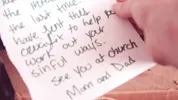 the last time
have sent this
demonist to help you
work out your
sinful ways.
See you at church
Mom and Dad